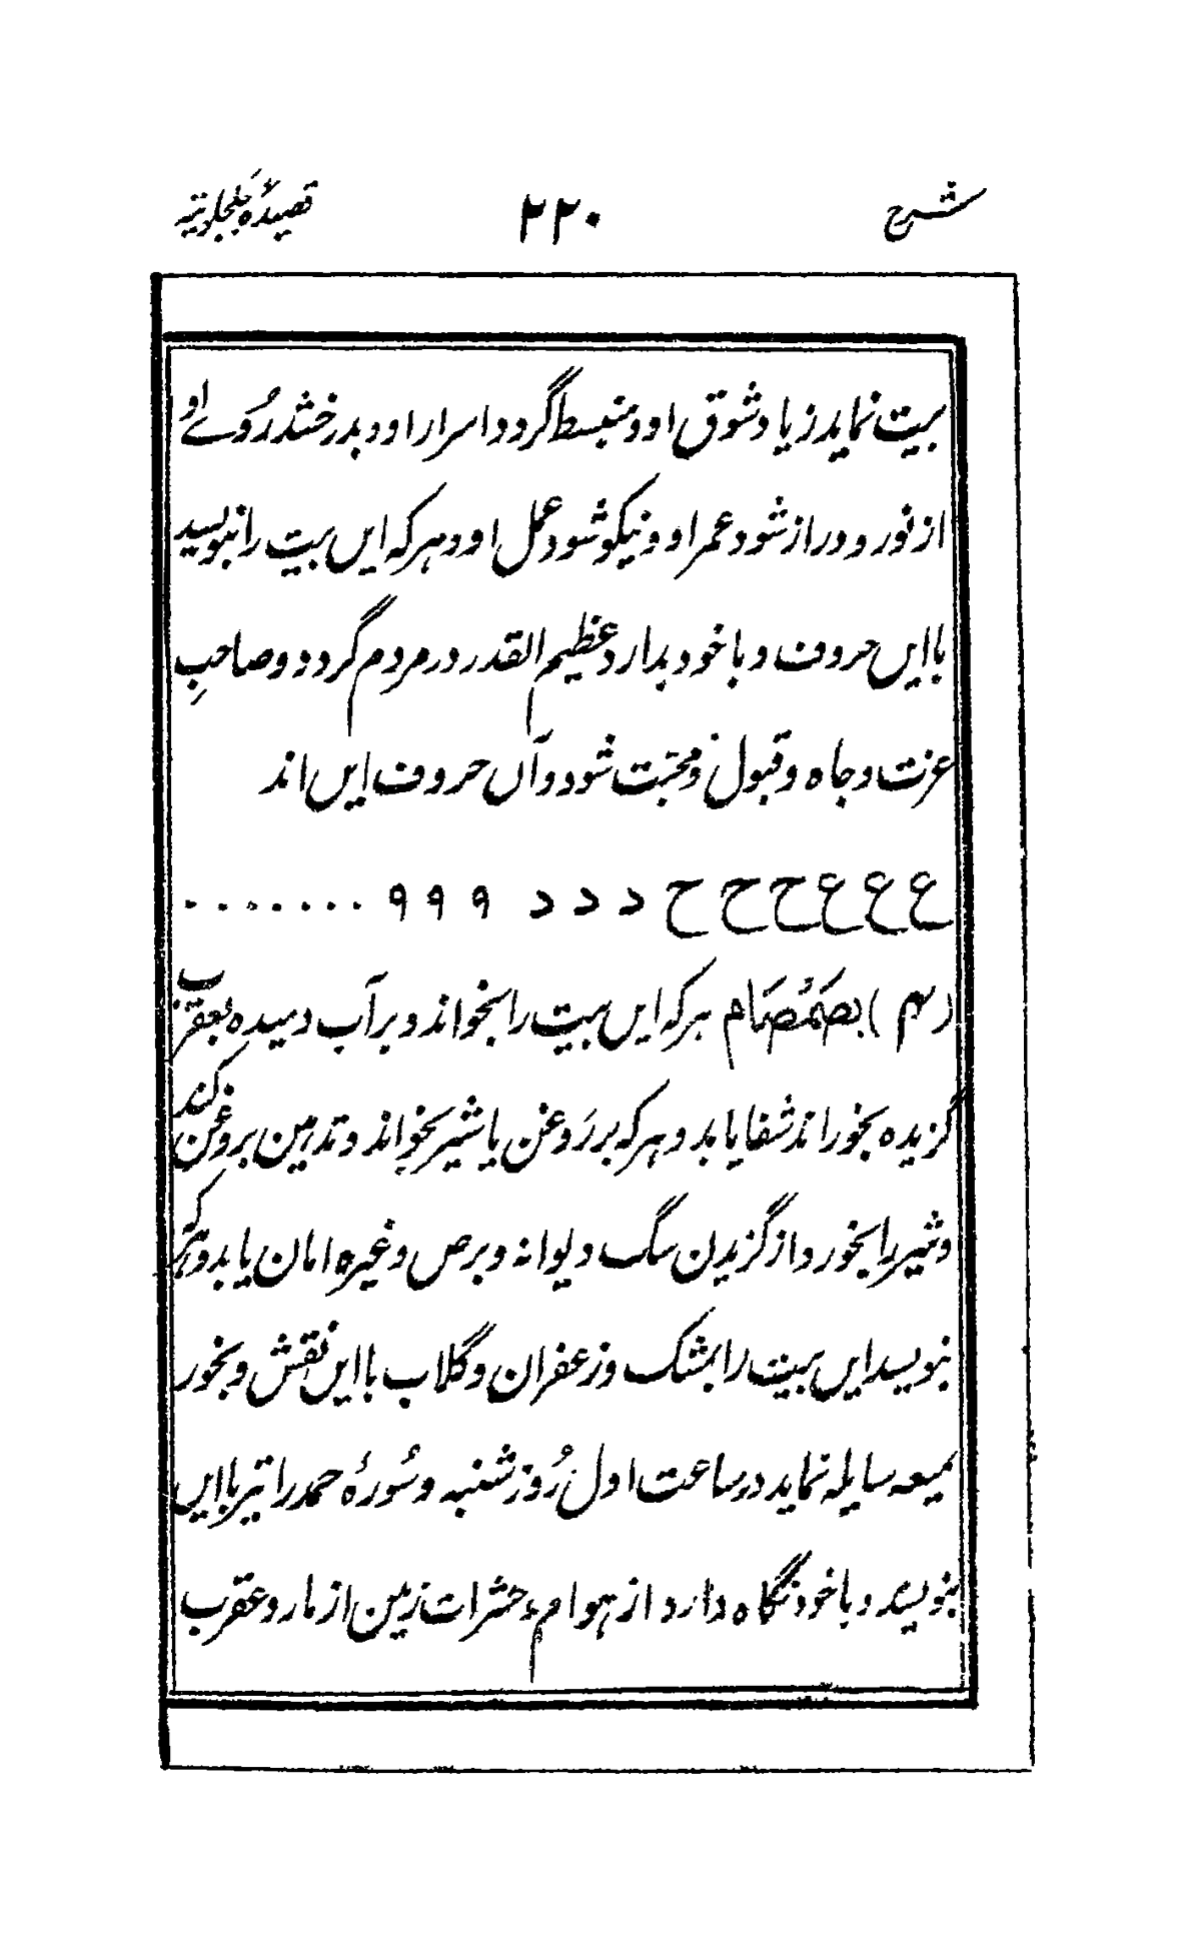 شرح ۲۲۰ قصیدۂ جلجلوتیہ
بیت نماید زیاد شوق او و منبسط گردد اسرار او و بدرخشد روے او
از نور و دراز شود عمر او و نیکو شود عمل او و ہر کہ ایں بیت را نبویسد
با ایں حروف و با خود بدارد عظیم القدر در مردم گردد و صاحبِ
عزت و جاہ و قبول و محبّت شود و آں حروف ایں اند
ع ع ع ح ح ح د د د ۹ ۹ ۹ . . . . . . . .
(۴۳) بصَمْصَام ہر کہ ایں بیت را بخواند و بر آب دمیدہ بعقرب
گزیدہ بخوراند شفا یابد و ہر کہ بر رَوغن یا شیر بخواند و تدہین بروغن کند
و شیر را بخورد از گزیدن سگ دیوانہ و برص و غیرہ امان یابد و ہر کہ
نبویسد ایں بیت را بمشک و زعفران و گلاب با ایں نقش و بخور
بمیعہ سایلہ نماید در ساعت اول رُوز شنبہ و سُورۂ حمد را نیز با ایں
بنویسد و با خود نگاہ دارد از ہوام و حشرات زمین از مار و عقرب